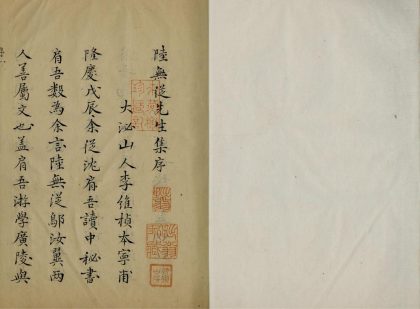 陸無從先生集序
大泌山人李維楨本寧甫
隆慶戊辰余從沈肩吾讀中秘書
肩吾數為余言陸無從鄔汝翼兩
人善屬文也蓋肩吾游學廣陵與